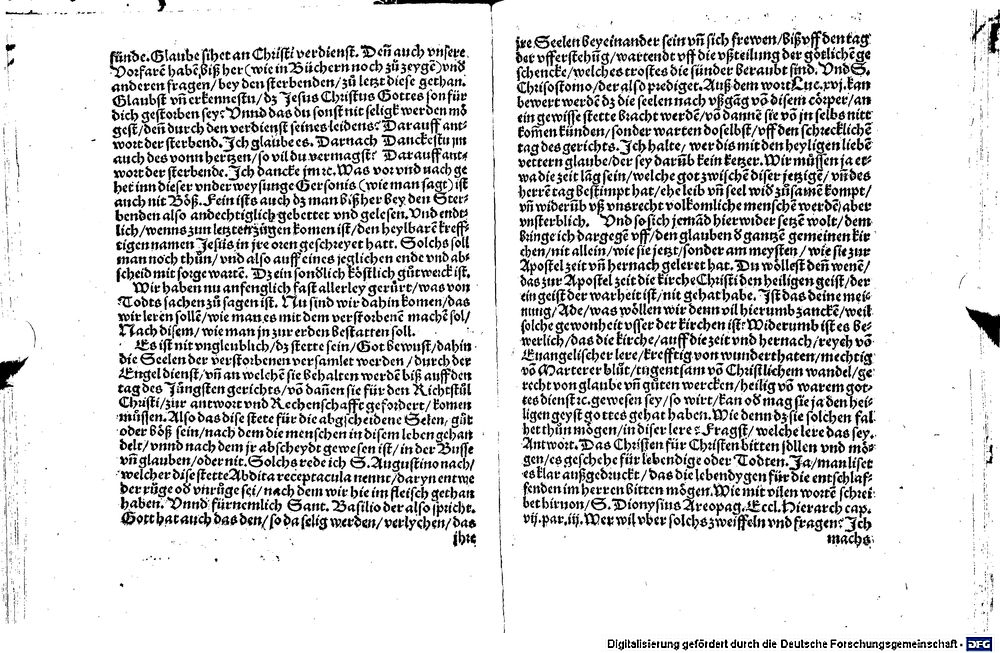 sünde. Glaube sihet an Christi verdienst. Deñ auch vnsere
Vorfarẽ habẽ biß her (wie in Büchern noch zů zeygẽ) vnd
anderen fragen / bey den sterbenden / zů letzt diese gethan.
Glaubst vñ erkennestu / dz Jesus Christus Gottes son für
dich gestorben sey? Vnnd das du sonst nit selig werden mö
gest / deñ durch den verdienst seines leidens? Darauff ant-
wort der sterbend. Ich glaube es. Darnach Danckestu jm
auch des vonn hertzen / so vil du vermagst? Darauff ant-
wort der sterbende. Ich dancke jm rc. Was vor vnd nach ge
het inn dieser vnderweysunge Gersonis (wie man sagt) ist
auch nit Böß. Fein ists auch dz man biß her bey den Ster-
benden also andechtiglich gebettet vnd gelesen. Vnd endt-
lich / wenns zun letzten zügen komen ist / den heylbarẽ kreff-
tigen namen Jesus in jre oren geschreyet hatt. Solchs soll
man noch thůn / vnd also auff eines jeglichen ende vnd ab-
scheid mit sorge wartẽ. Dz ein sondlich köstlich gůt werck ist.
Wir haben nu anfenglich fast allerley gerürt / was von
Todts sachen zů sagen ist. Nu sind wir dahin komen / das
wir leren sollẽ / wie man es mit dem verstorbenẽ machẽ sol /
Nach disem / wie man jn zur erden bestatten soll.
Es ist nit vngleublich / dz stette sein / Got bewust / dahin
die Seelen der verstorbenen versamlet werden / durch der
Engel dienst / vn an welchẽ sie behalten werdẽ biß auff den
tag des Jüngsten gerichts / võ dañen sie für den Richtstůl
Christi / zur antwort vnd Rechenschafft gefordert / komen
müssen. Also das dise stete für die abgscheidene Selen / gůt
oder böß sein / nach dem die menschen in disem leben gehan
delt / vnnd nach dem jr abscheydt gewesen ist / in der Busse
vñ glauben / oder nit. Solchs rede ich S. Augustino nach /
welcher dise stette Abdita receptacula nennt / daryn entwe
der růge od vnrůge sei / nach dem wir hie im fleisch gethan
haben. Vnnd fürnemlich Sant. Basilio der also spricht.
Gott hat auch das den / so da selig werden / verlychen / das
jhre
jre Seelen beyeinander sein vñ sich frewen / biß vff den tag
der vfferstehũg / wartendt vff die vßteilung der götlichẽ ge
schencke / welches trostes die sünder beraubt sind. Vnd S.
Chrisostomo / der also prediget. Auß dem wort Luc. xvj. kan
bewert werdẽ dz die seelen nach vßgãg võ disem cörper / an
ein gewisse stette bracht werdẽ / võ dannẽ sie võ jn selbs nitt
kom̃en künden / sonder warten doselbst / vff den schrecklichẽ
tag des gerichts. Ich halte / wer dis mit den heyligen liebẽ
vettern glaube / der sey darũb kein ketzer. Wir müssen ja et-
wa die zeit lãg sein / welche got zwischẽ diser jetzigẽ / vñ des
herrẽ tag bestimpt hat / ehe leib vñ seel wid zůsamẽ kompt /
vñ widerũb vß vnsrecht volkomliche menschẽ werdẽ / aber
vnsterblich. Vnd so sich jemãd hierwider setzẽ wolt / dem
bringe ich dargegẽ vff / den glauben d gantzẽ gemeinen kir
chen / nit allein / wie sie jetz / sonder am meysten / wie sie zur
Apostel zeit vñ hernach geleret hat. Du wöllest deñ wenẽ /
das zur Apostel zeit die kirche Christi den heiligen geist / der
ein geist der warheit ist / nit gehat habe. Ist das deine mei-
nung / Ade / was wöllen wir denn vil hierumb zanckẽ / weil
solche gewonheit vsser der kirchen ist? Widerumb ist es be-
werlich / das die kirche / auff die zeit vnd hernach / reych võ
Euangelischer lere / krefftig von wunderthaten / mechtig
võ Marterer blůt / tugentsam võ Christlichem wandel / ge
recht von glaube vñ gůten wercken / heilig võ warem got-
tes dienst rc. gewesen sey / so wirt / kan od mag sie ja den hei-
ligen geyst gottes gehat haben. Wie denn dz sie solchen fal
het thůn mögen / in diser lere? Fragst / welche lere das sey.
Antwort. Das Christen für Christen bitten sollen vnd mö-
gen / es geschehe für lebendige oder Todten. Ja / man liset
es klar außgedruckt / das die lebendygen für die entschlaf-
fenden im herren bitten mögen. Wie mit vilen wortẽ schrei
bet hiruon / S. Dionysius Areopag. Eccl. Hierarch cap.
vij. par. iij. Wer wil vber solchs zweiffeln vnd fragen? Ich
machs
Digitalisierung gefördert durch die Deutsche Forschungsgemeinschaft - DFG